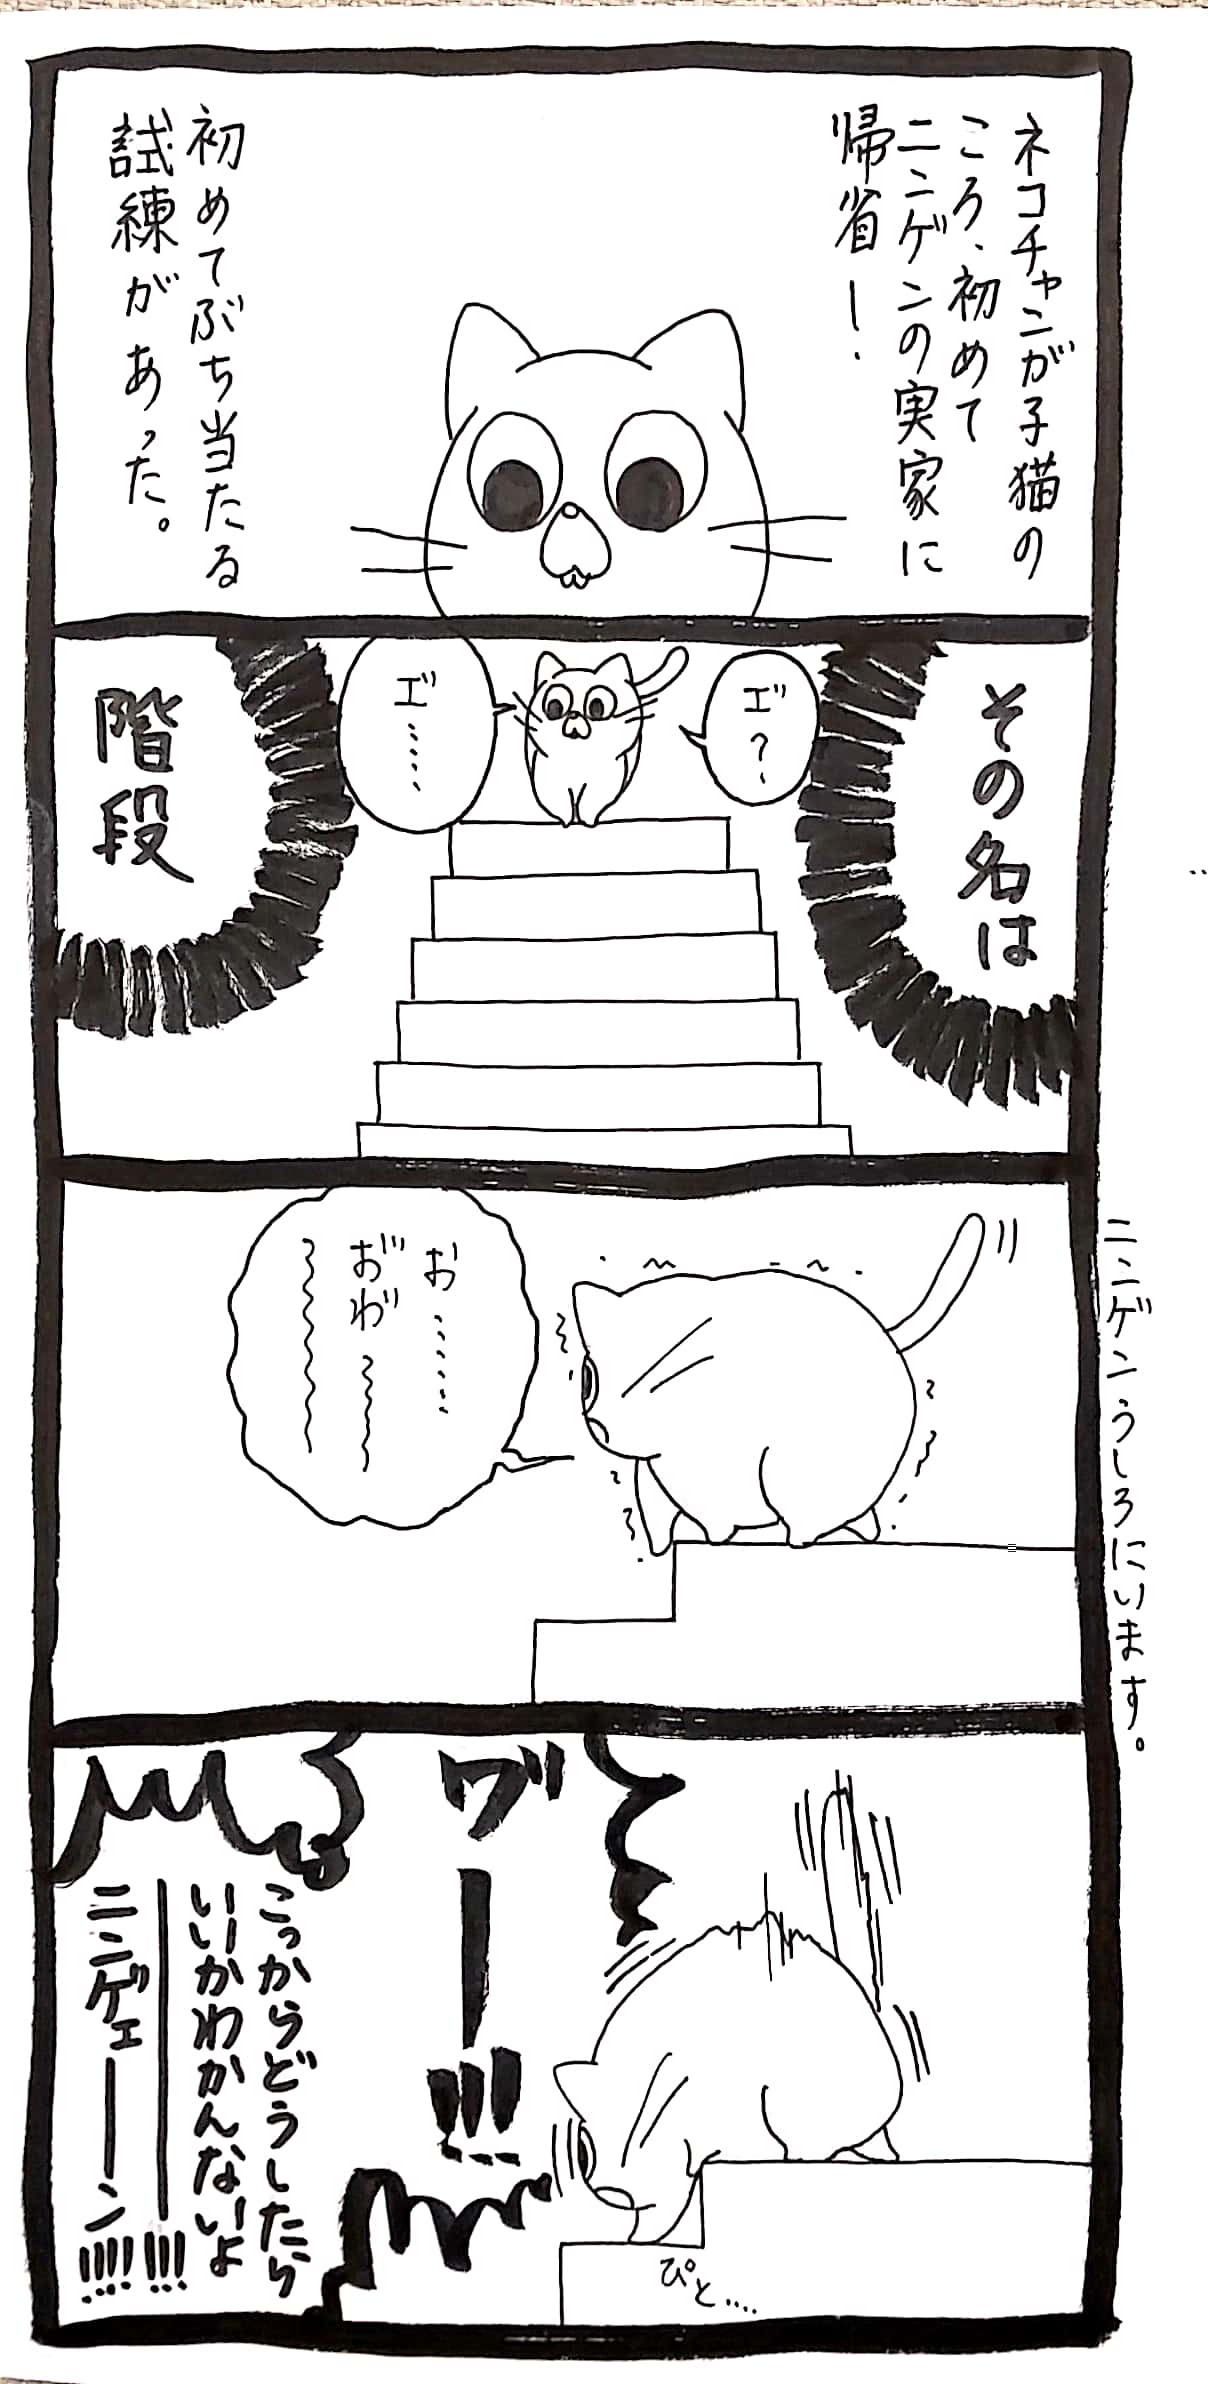 ネコチャンが子猫の
ころ、初めて
ニンゲンの実家に
帰省ー!
初めてぶち当たる
試練があった。
その名は
階段
エ゛?
エ゛……
お゛……
お゛わ゛〜〜〜
〜〜〜〜〜〜
ニンゲンうしろにいます。
ワ゛ー!!!
こっからどうしたら
いいかわかんないよ
ー!!!
ニンゲェーン!!!!
ぴと….